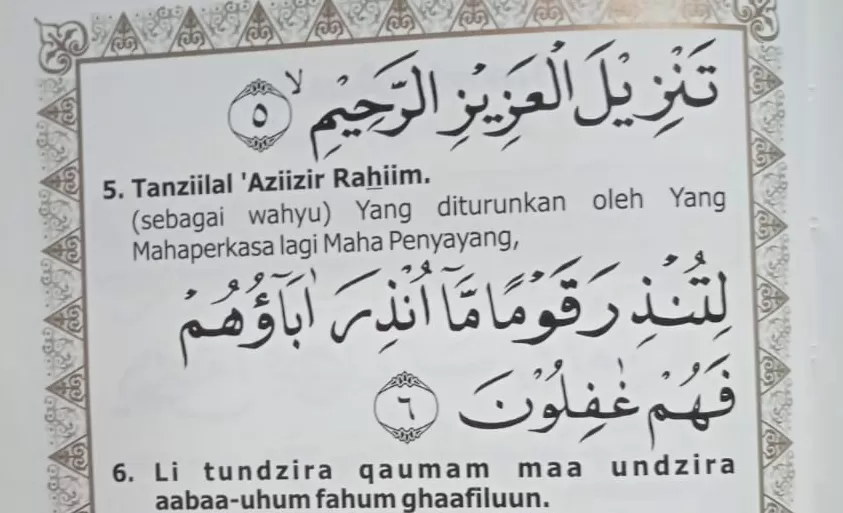 تَنْزِيْلَ الْعَزِيْزِ الرَّحِيْمِۙ ٥
5. Tanziilal 'Aziizir Rahiim.
(sebagai wahyu) Yang diturunkan oleh Yang
Mahaperkasa lagi Maha Penyayang,
لِتُنْذِرَ قَوْمًا مَّآ اُنْذِرَ اٰبَاۤؤُهُمْ
فَهُمْ غٰفِلُوْنَ ٦
6. Li tundzira qaumam maa undzira
aabaa-uhum fahum ghaafiluun.